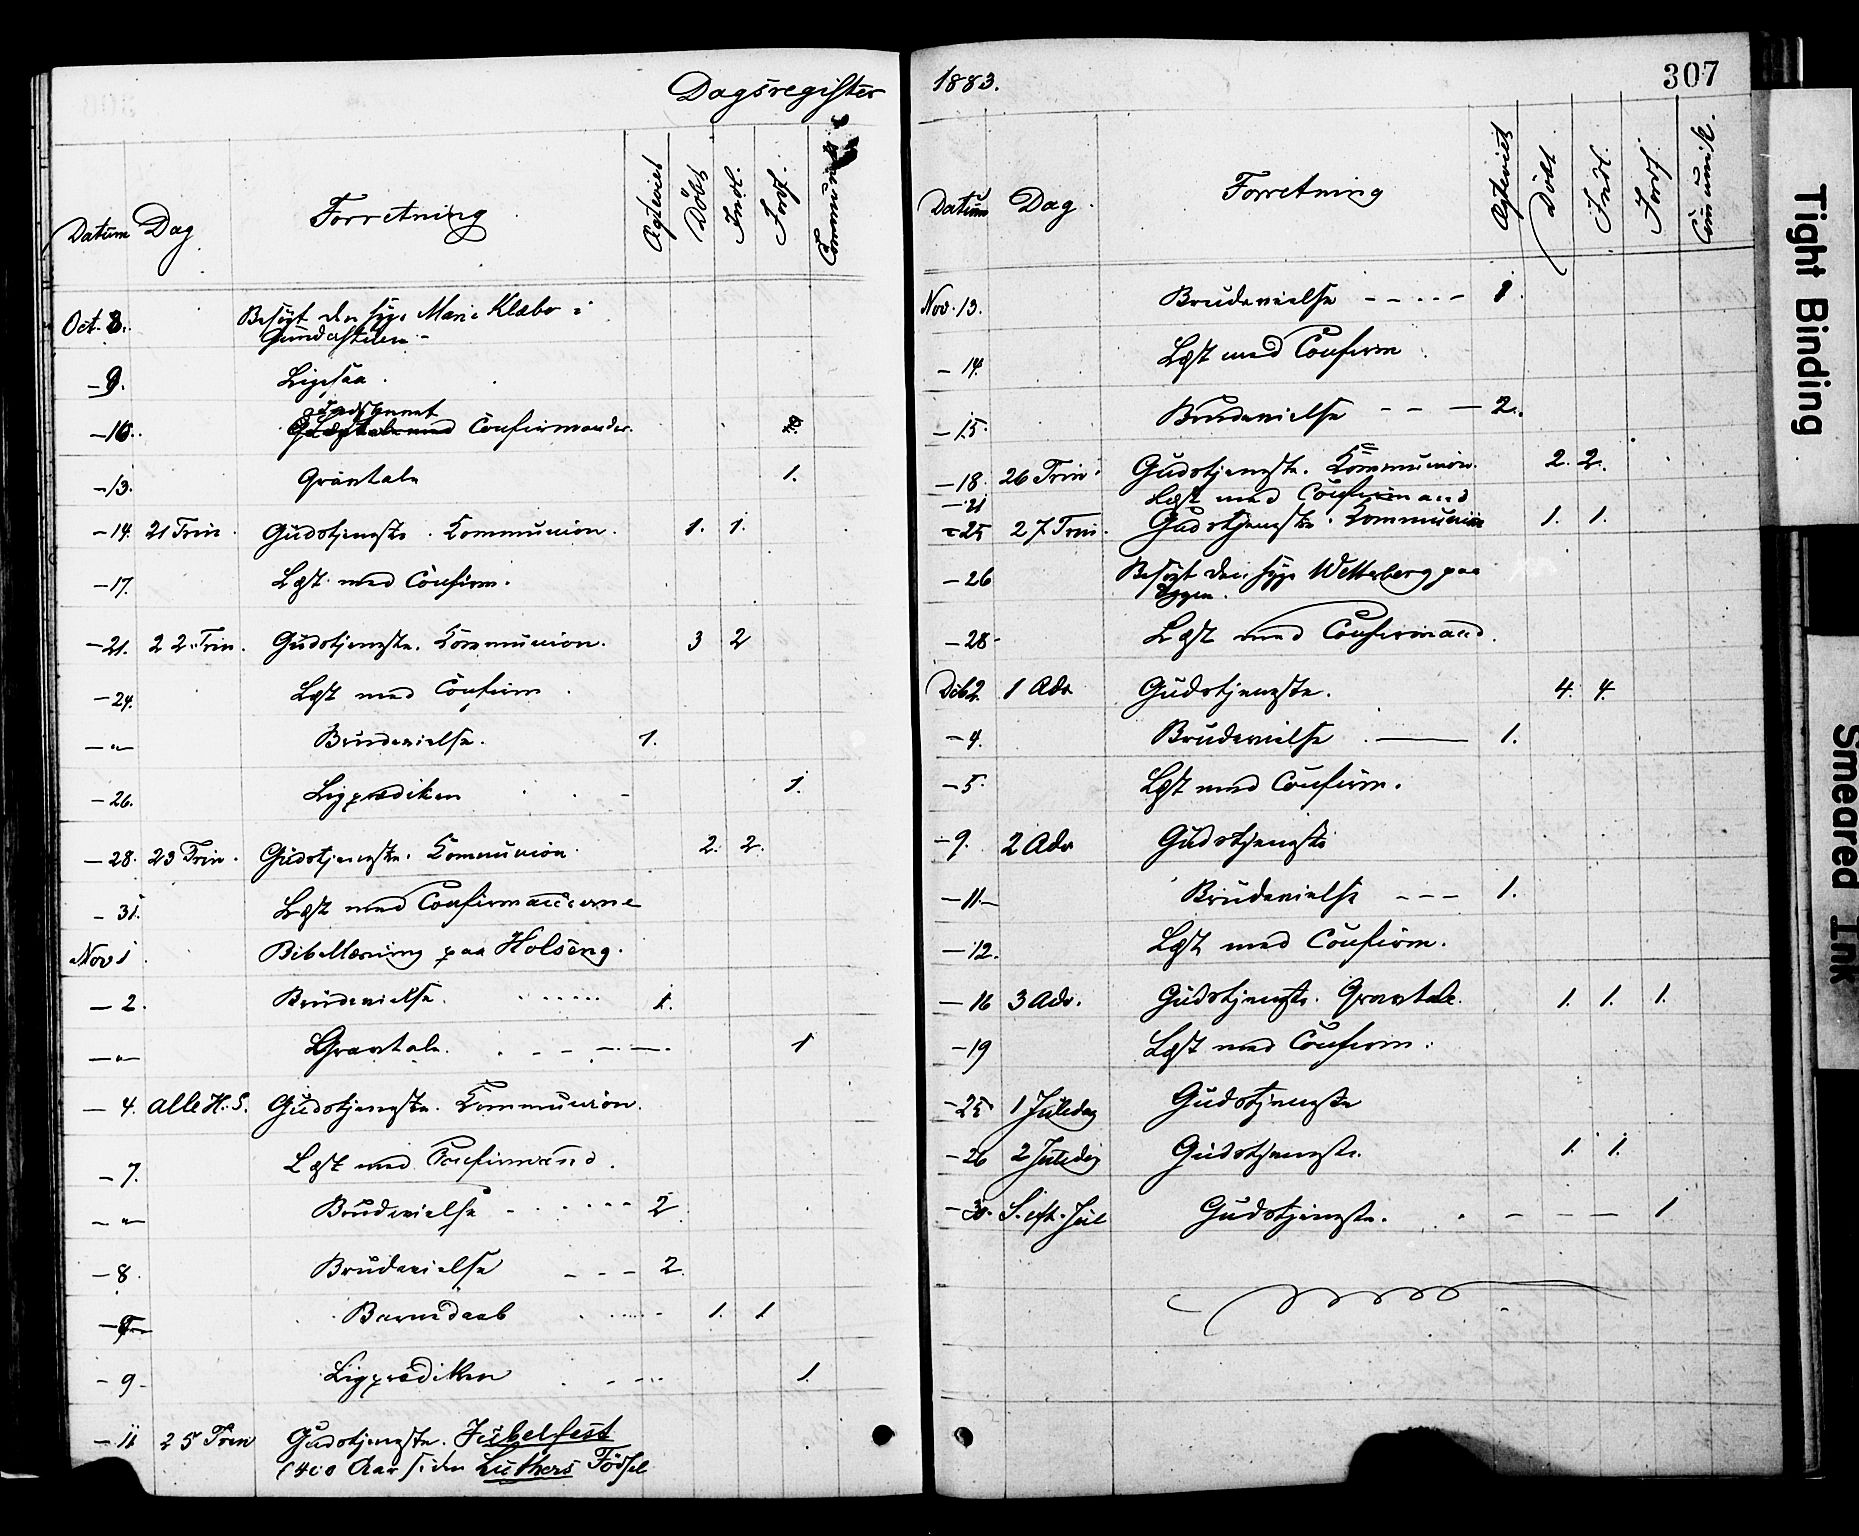 Dagsregister
Datum Dag Forretning Ægteviet Döbt Ind. Jord. Communik.
Oct. 8. Besögt den syge Marie Klæbo i
- 9. Ligesaa.
- 10. Confirmander.
- 13. Gravtale 1.
- 14. 21 Trin. Gudstjeneste. Kommunion. 1. 1.
- 17. Læst med Confirm.
- 21. 22. Trin. Gudstjeneste. Kommunion. 3 2
- 24. Læst med Confirm.
- " - Brudevielse. 1.
- 26. Ligprædiken - 1.
- 28. 23 Trin. Gudstjeneste. Kommunion. 2. 2.
- 31. Læst med Confirmanderne
Nov 1. Bibellæsning paa Holseng.
- 2. Brudevielse. 1.
- " - Gravtale. 1
- 4. Alle H. S. Gudstjeneste. Kommunion.
- 7. Læst med Confirmand.
- " - Brudevielse 2
- 8. Brudevielse - - - 2.
Barnedaab 1. 1
- 9 - Ligprædiken 1.
- 11 25 Trin Gudstjeneste. Jubelfest
(400 Aar siden Luthers Födsel
1883. 307
Datum Dag. Forretning Ægteviet Döbt Ind. Jord. Communik.
Nov. 13. Brudevielse - - - - 1.
- 14. Læst med Confirm.
- 15. Brudevielse - - - 2.
- 18. 26 Trin. Gudstjeneste. Kommunion. 2. 2.
- 21 Læst med Confirmand
- 25 27 Trin. Gudstjeneste. Kommunion 1. 1.
- 26 Besögt den syge Wetterberg paa
- 28 - Læst med Confirmand.
Dcb 2. 1 Adv Gudstjeneste. 4. 4.
- 4. Brudevielse. 1.
- 5. Læst med Confirm.
- 9. 2 Adv Gudstjeneste
- 11 - Brudevielse - - - 1.
- 12. Læst med Confirm.
- 16 3 Adv. Gudstjeneste. Gravtale. 1. 1. 1.
- 19 Læst med Confirm.
- 25 1 Juledag Gudstjeneste
- 26 2 Juledag Gudstjeneste. 1. 1.
- 30. S. eft. Jul Gudstjeneste. - - - - 1
Tight Binding
Smeared Ink